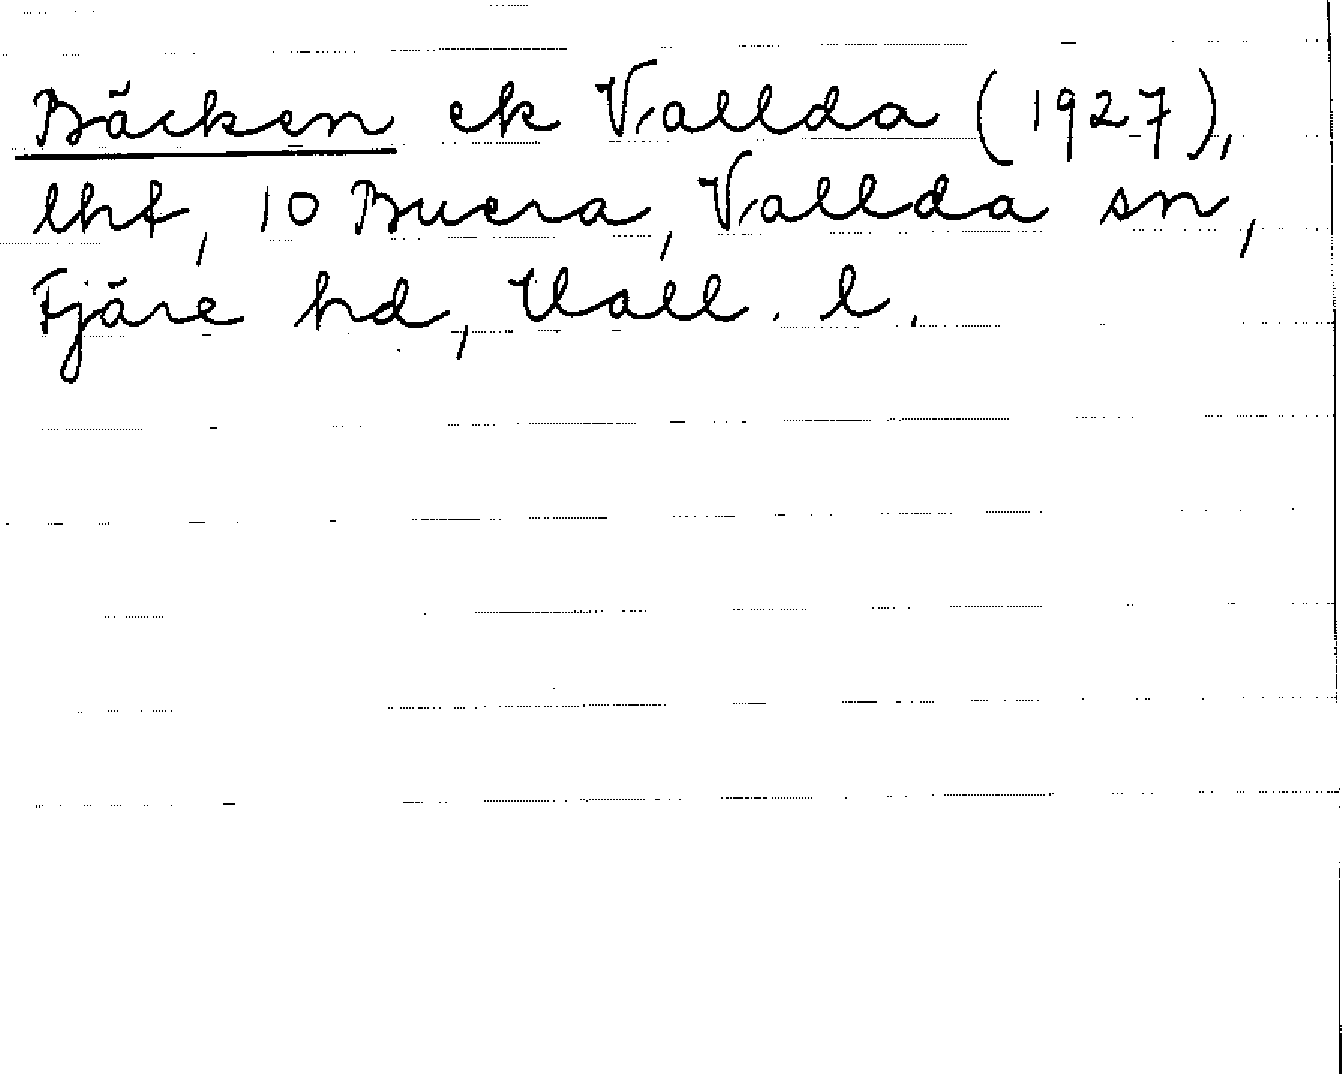 Bäcken ek Vallda (1927),
lht, 10 Buera, Vallda sn,
Fjäre hd, Hall. l.